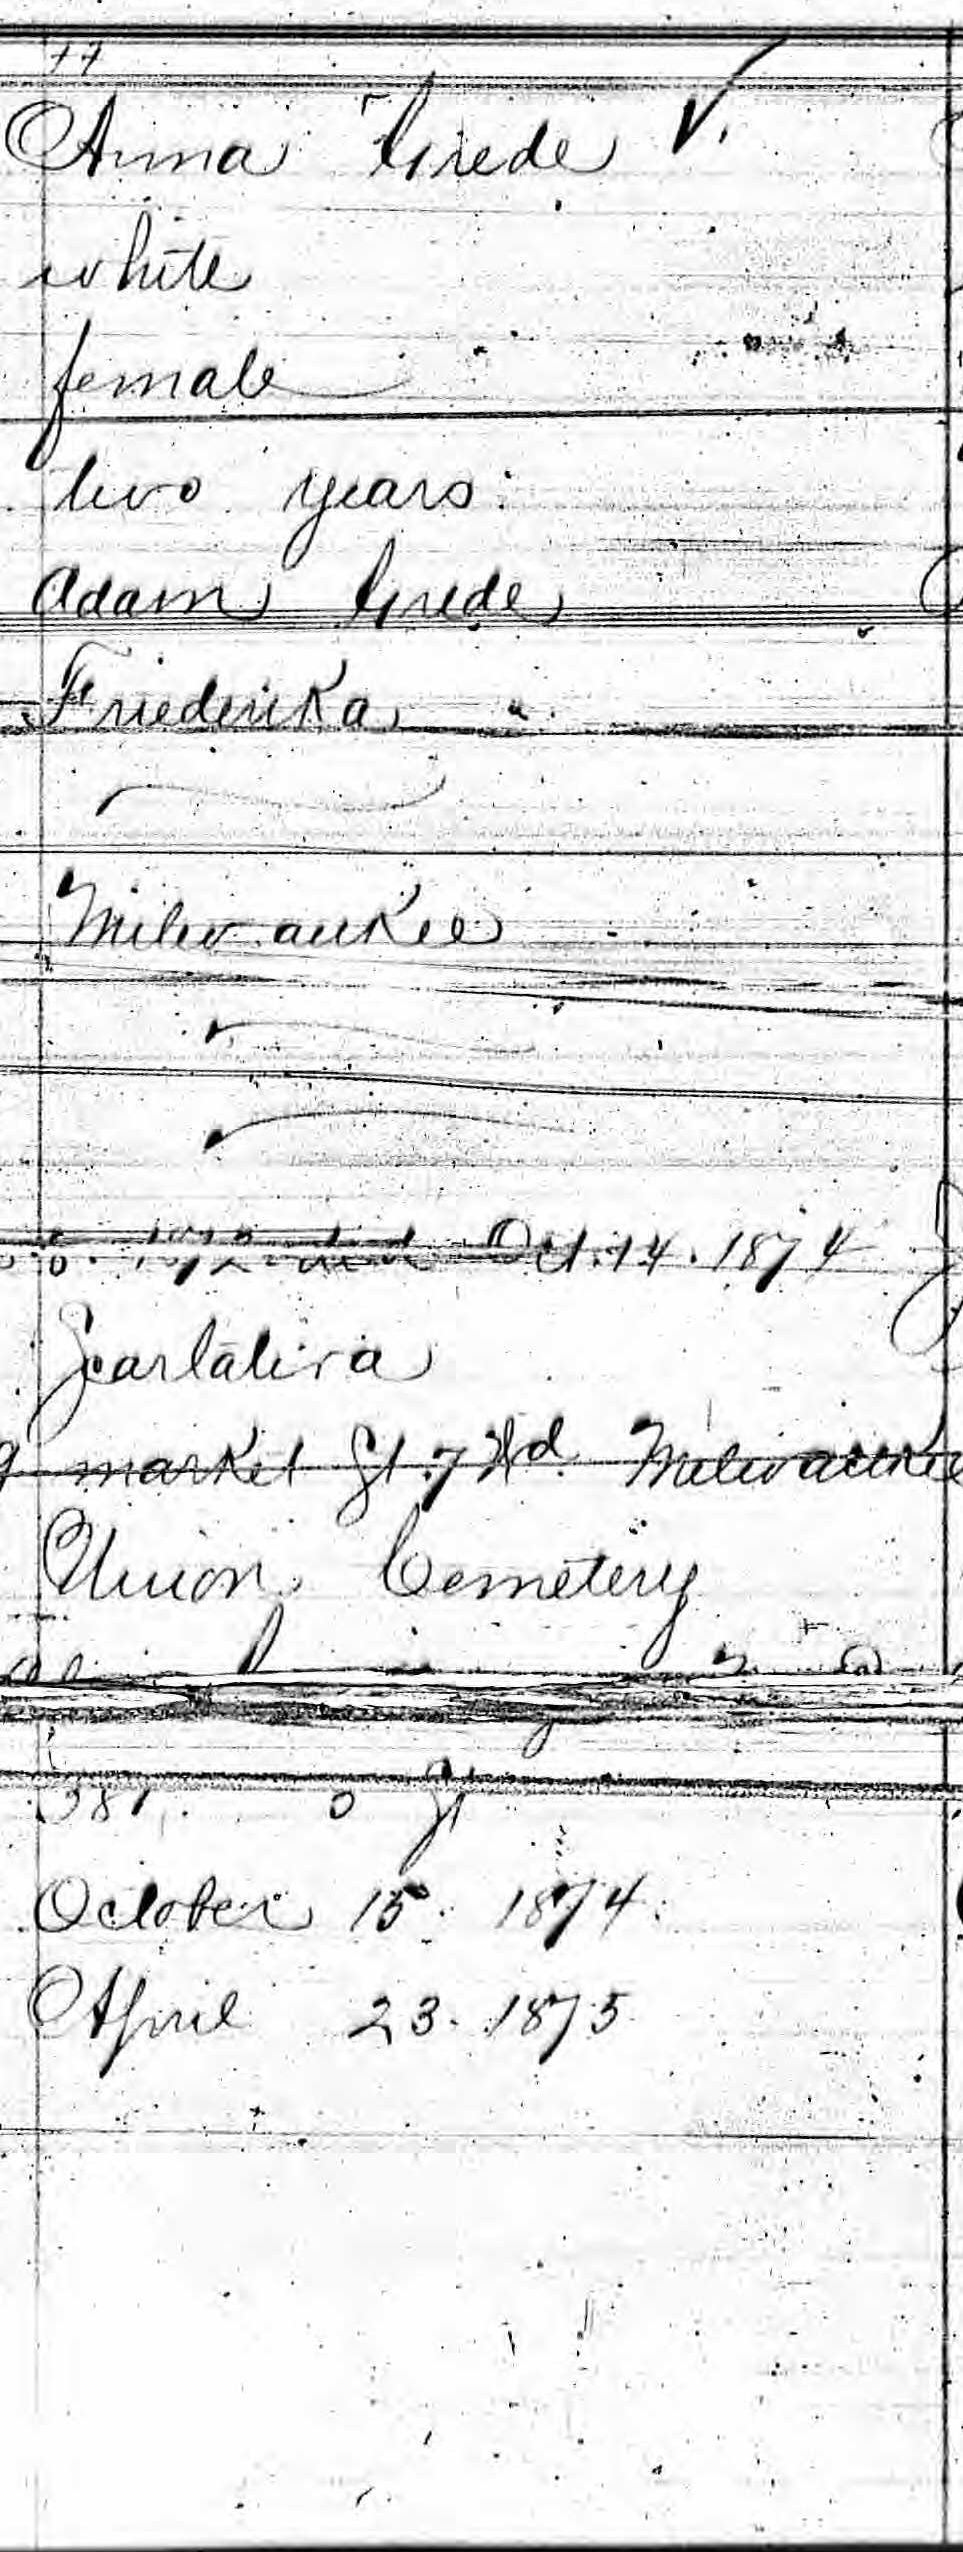 77
Anna Grede
white
female
two years
Adam Grede
Friederika
Milwaukee
1872 died Oct. 14. 1874
Scarlatina
market St. 7 Wd. Milwaukee
Union Cemetery
St
October 15. 1874
April 23. 1875